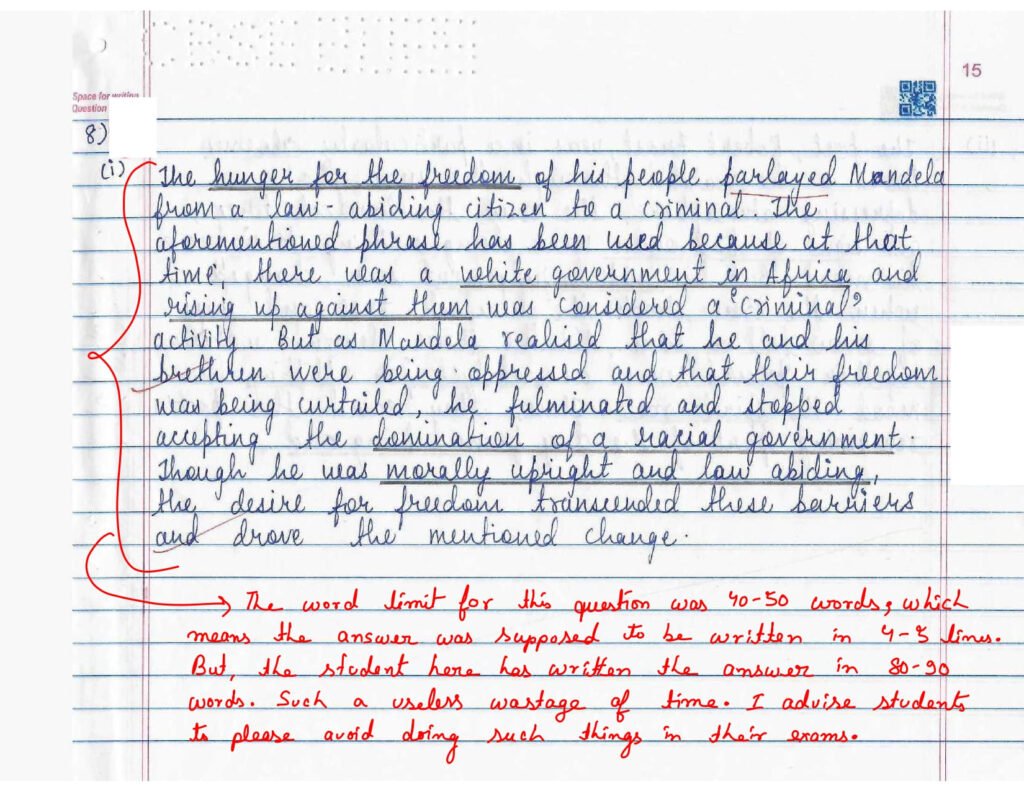 15
Space for writing
Question
8)
(i) The hunger for the freedom of his people parlayed Mandela
from a law-abiding citizen to a criminal. The
aforementioned phrase has been used because at that
time, there was a white government in Africa and
rising up against them was considered a "criminal"
activity. But as Mandela realised that he and his
brethren were being oppressed and that their freedom
was being curtailed, he fulminated and stopped
accepting the domination of a racial government.
Though he was morally upright and law abiding,
the desire for freedom transcended these barriers
and drove the mentioned change.
→ The word limit for this question was 40-50 words, which
means the answer was supposed to be written in 4-5 lines.
But, the student here has written the answer in 80-90
words. Such a useless wastage of time. I advise students
to please avoid doing such things in their exams.